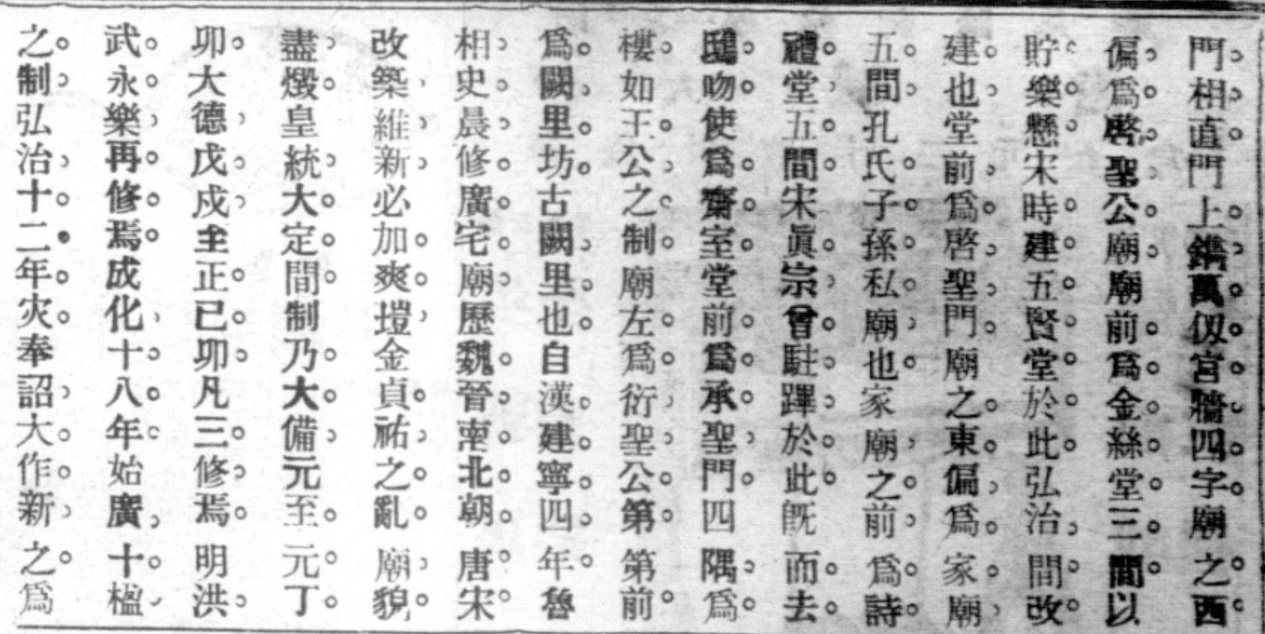 門相直門上鐫萬仭宮牆四字廟之西
偏爲啓聖公廟廟前爲金絲堂三間以
貯樂懸宋時建五賢堂於此弘治間改
建也堂前爲啓聖門廟之東偏爲家廟
五間孔氏子孫私廟也家廟之前爲詩
禮堂五間宋眞宗曾駐蹕於此旣而去
鴟吻使爲齋室堂前爲承聖門四隅爲
樓如王公之制廟左爲衍聖公第第前
爲闕里坊古闕里也自漢建寧四年魯
相史晨修廣宅廟歷魏晉南北朝唐宋
改築維新必加爽塏金貞祐之亂廟貌
盡燬皇統大定間制乃大備元至元丁
卯大德戊戌至正已卯凡三修焉明洪
武永樂再修焉成化十八年始廣十楹
之制弘治十二年灾奉詔大作新之爲